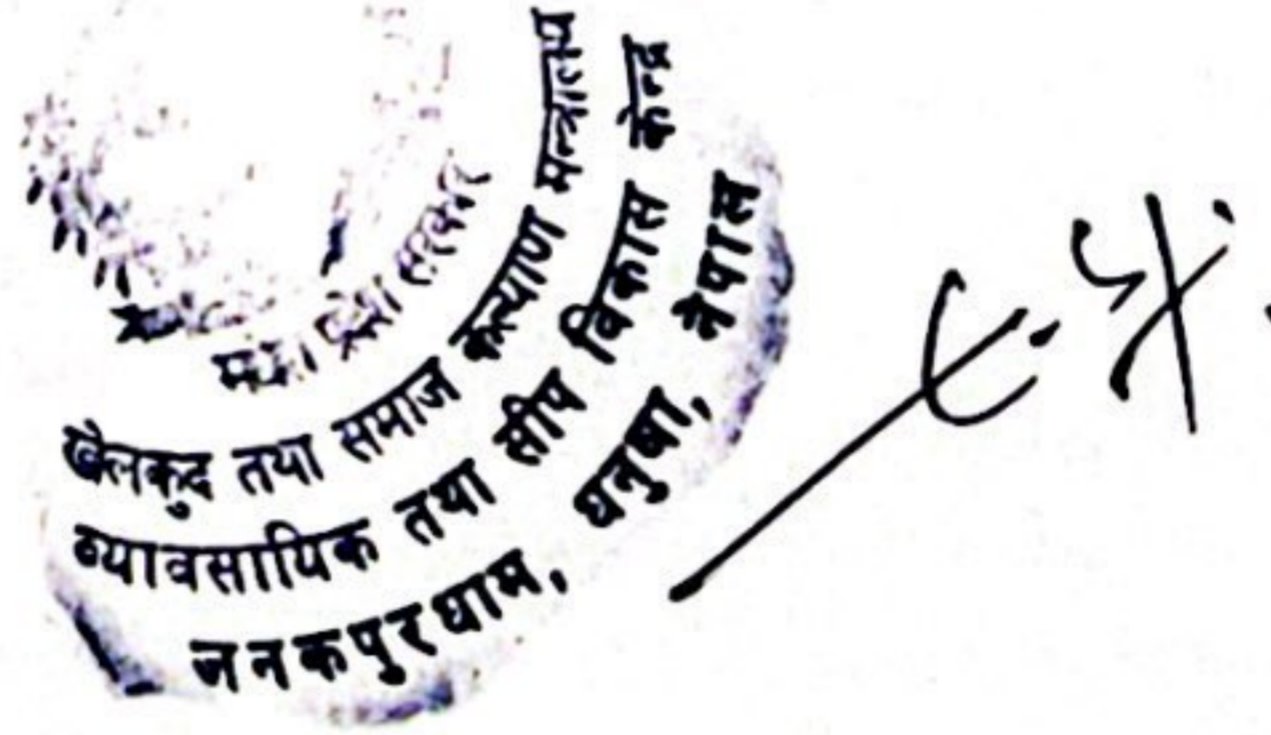 सरकार
खेलकुद तथा समाज कल्याण मन्त्रालय
व्यावसायिक तथा सीप विकास केन्द्र
जनकपुरधाम, धनुषा, नेपाल